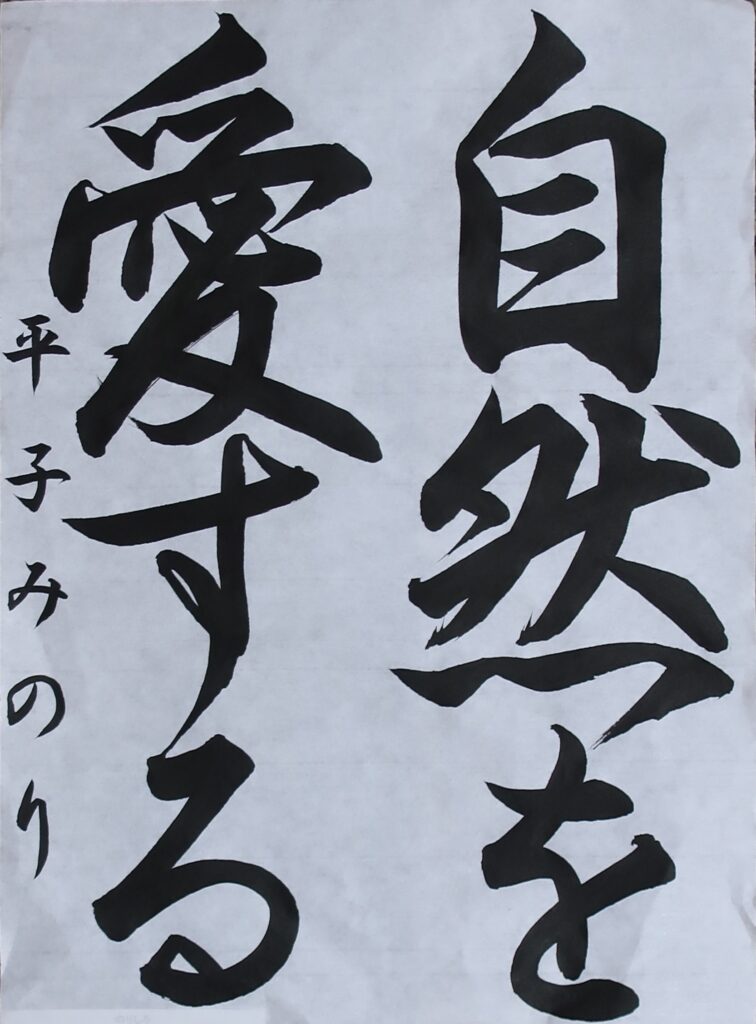 自然を
愛する
平子みのり